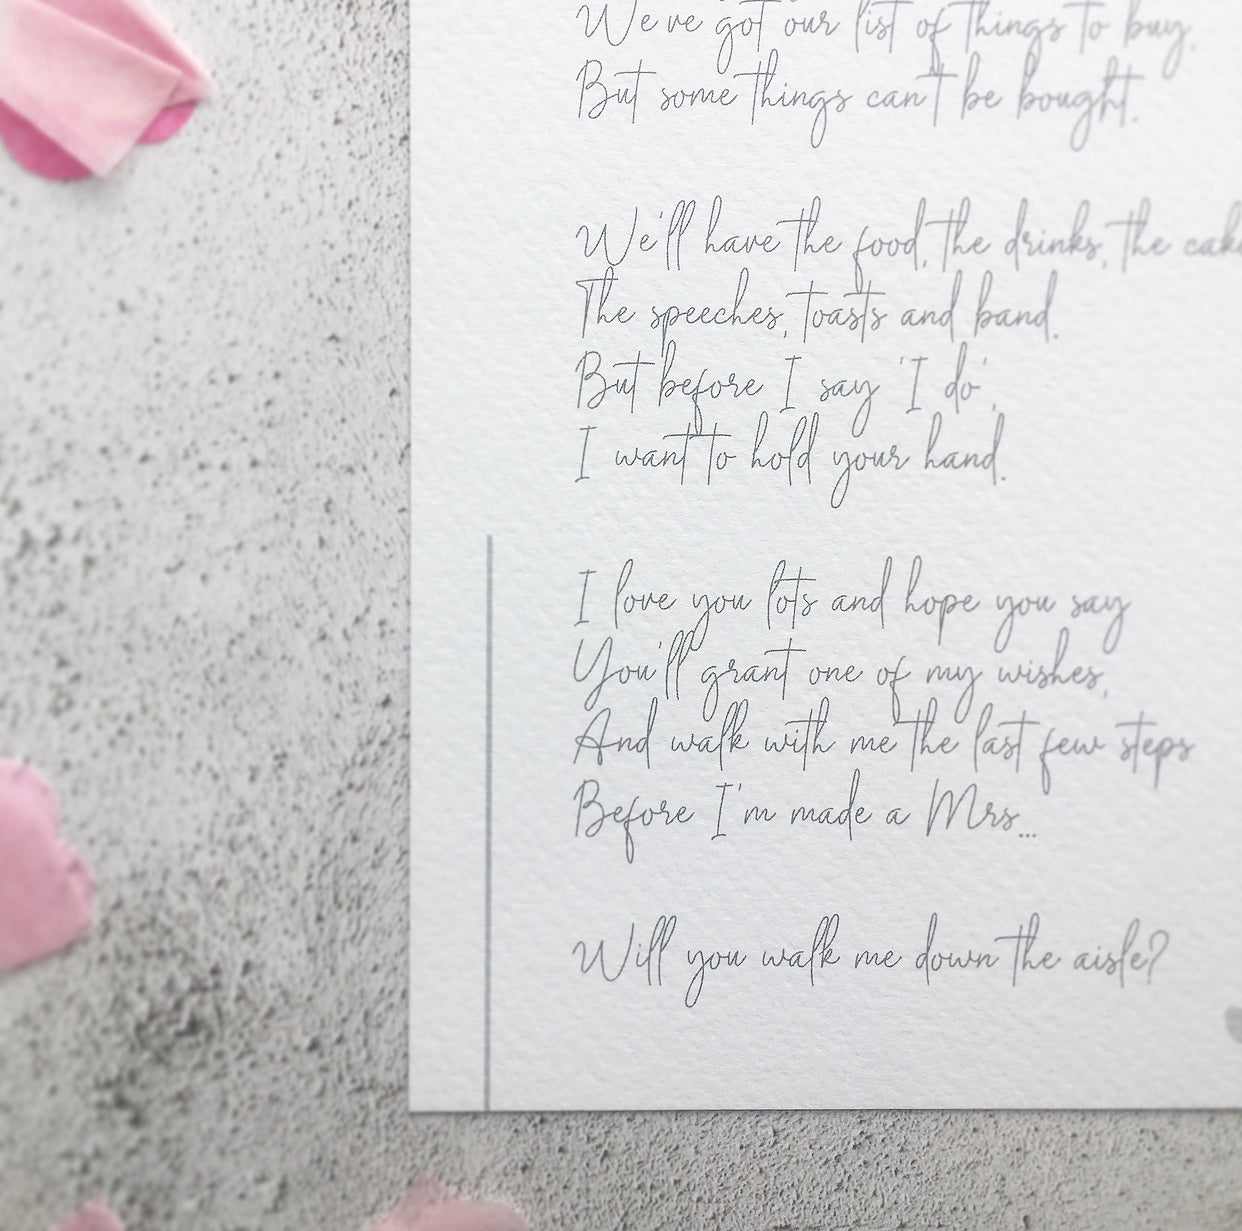 We've got our list of things to buy,
But some things can't be bought.
We'll have the food, the drinks, the cake
The speeches, toasts and band.
But before I say 'I do',
I want to hold your hand.
I love you lots and hope you say
You'll grant one of my wishes,
And walk with me the last few steps
Before I'm made a Mrs...
Will you walk me down the aisle?